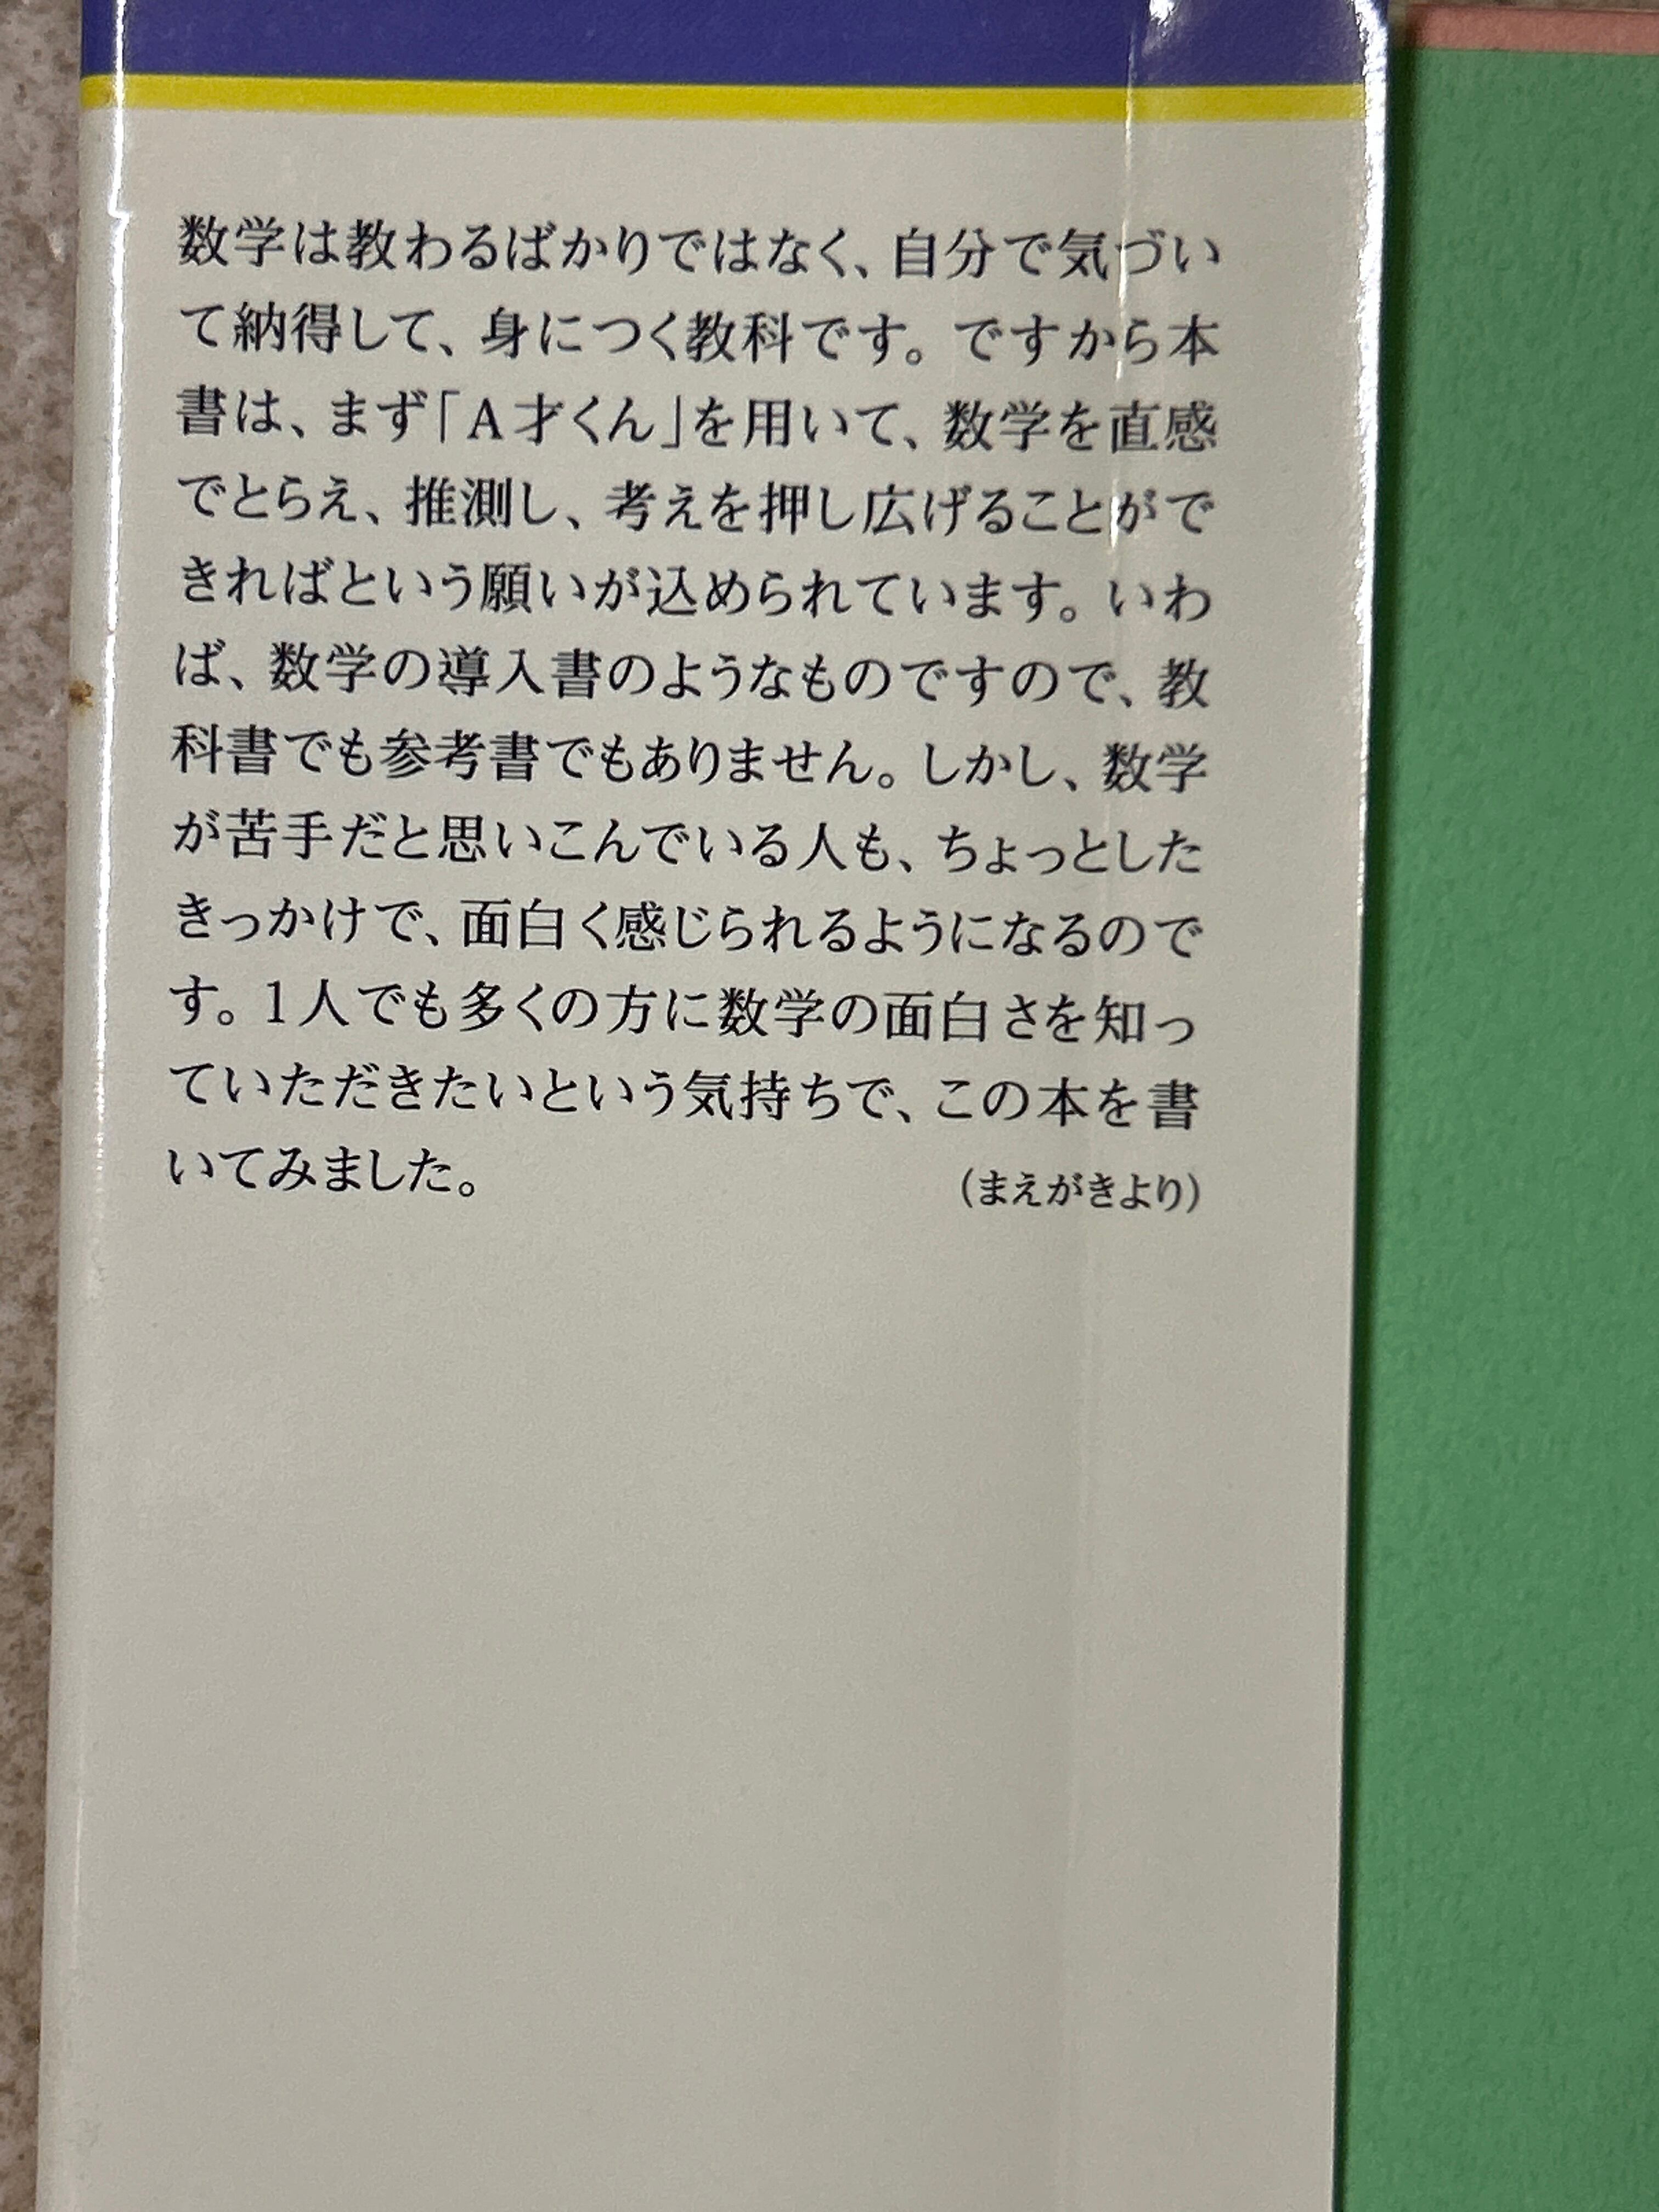 数学は教わるばかりではなく、自分で気づい
て納得して、身につく教科です。ですから本
書は、まず「A才くん」を用いて、数学を直感
でとらえ、推測し、考えを押し広げることがで
きればという願いが込められています。いわ
ば、数学の導入書のようなものですので、教
科書でも参考書でもありません。しかし、数学
が苦手だと思いこんでいる人も、ちょっとした
きっかけで、面白く感じられるようになるので
す。1人でも多くの方に数学の面白さを知っ
ていただきたいという気持ちで、この本を書
いてみました。
（まえがきより）